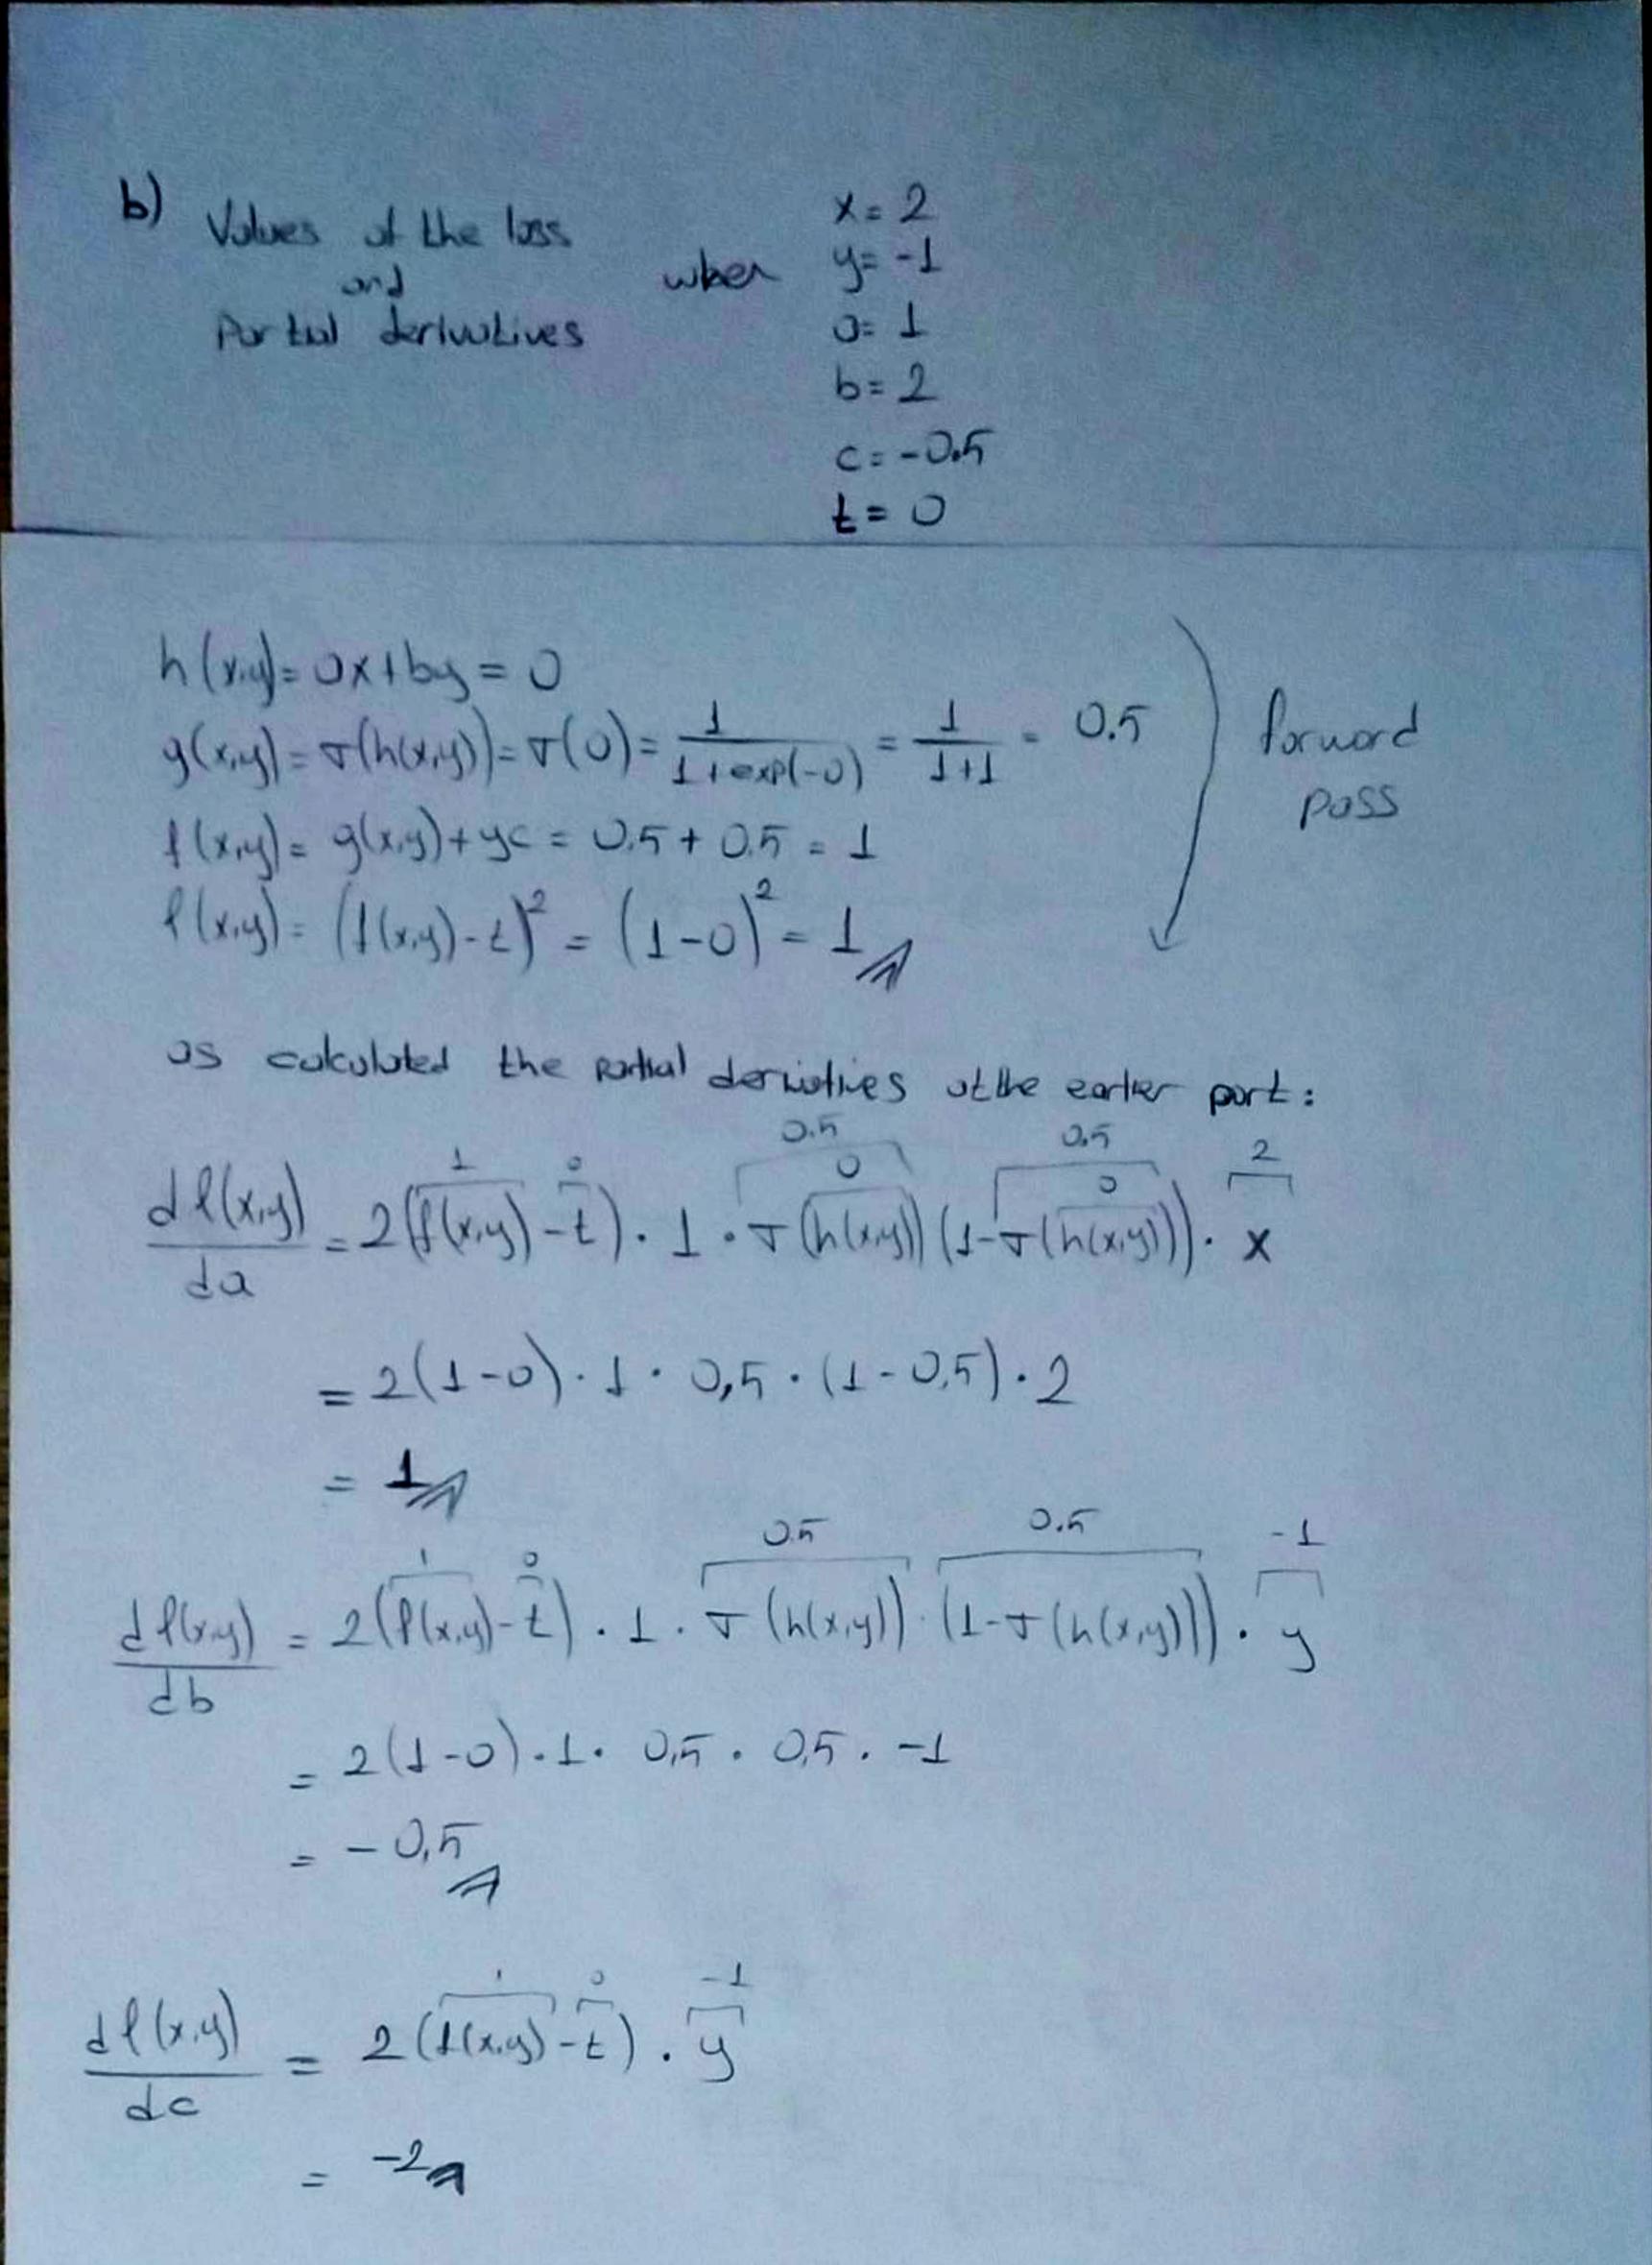 b) Values of the loss
and
Partial derivatives
when
x = 2
y = -1
a = 1
b = 2
c = -0.5
t = 0
h(x,y) = ax + by = 0
g(x,y) = σ(h(x,y)) = σ(0) = 1/(1+exp(-0)) = 1/(1+1) = 0.5
f(x,y) = g(x,y) + yc = 0.5 + 0.5 = 1
l(x,y) = (f(x,y) - t)² = (1-0)² = 1
forward
pass
as calculated the partial derivatives at the earlier part:
0.5 0.5
1 0 0 0 2
dl(x,y)/da = 2(f(x,y) - t) · 1 · σ(h(x,y)) (1-σ(h(x,y))) · x
= 2(1-0) · 1 · 0,5 · (1-0,5) · 2
= 1
1 0 0.5 0.5 -1
dl(x,y)/db = 2(f(x,y) - t) · 1 · σ(h(x,y)) · (1-σ(h(x,y))) · y
= 2(1-0) · 1 · 0,5 · 0,5 · -1
= -0,5
1 0 -1
dl(x,y)/dc = 2(f(x,y) - t) · y
= -2